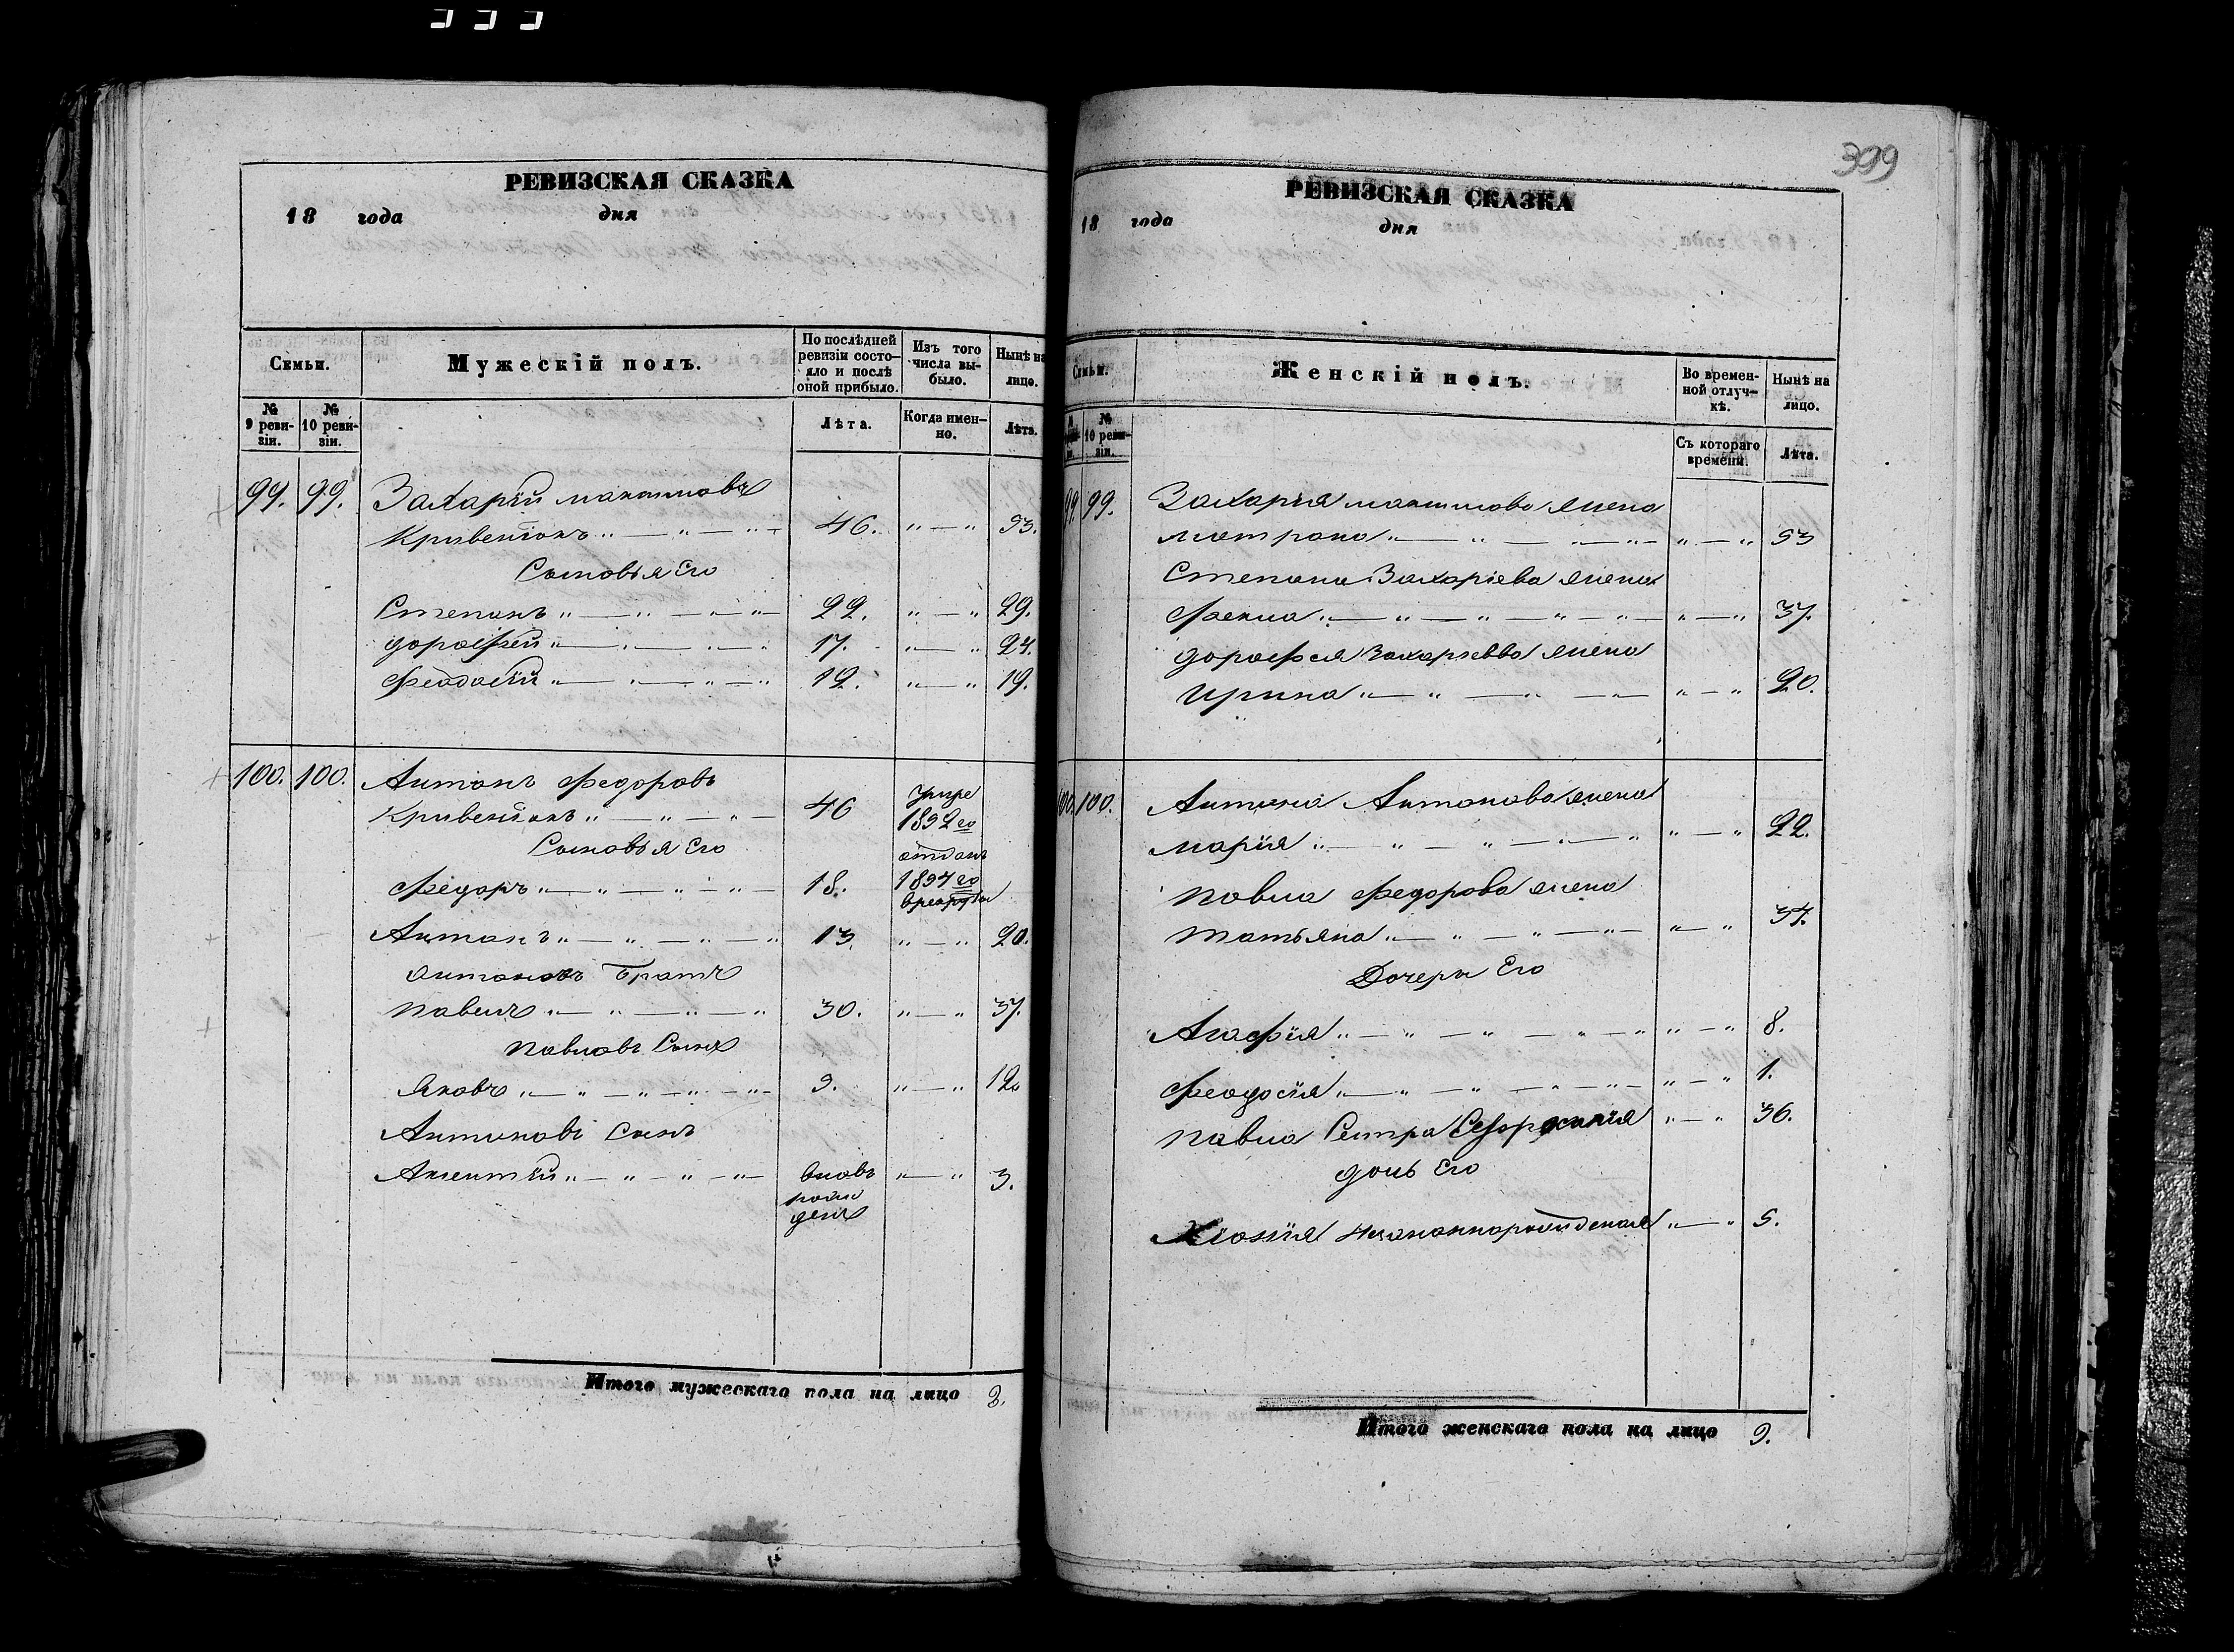 399
РЕВИЗСКАЯ СКАЗКА
18 года дня
Семьи.
Мужескій полъ.
По послѣдней ревизіи состо- яло и послѣ оной прибыло.
Изъ того числа вы- было.
Нынѣ на лицо.
№ 9 реви- зіи.
№ 10 реви- зіи.
Лѣта.
Когда имен- но.
Лѣта.
99. 99. Захарій Максимовъ
Кривенкокъ 46. 53.
Сыновья Его
Степанъ 22. 29.
Дорофей 17. 24.
Феодосій 12. 19.
100. 100. Антонъ Федоровъ
Кривенкокъ 46 умре 1852 го
Сыновья Его
Федоръ 18. отданъ 1854 го
Антонъ 13. 20.
Антоновъ Братъ
Павелъ 30. 37.
Павловъ Сынъ
Яковъ 12
Антоновъ Сынъ
Аксентій вновь рожденъ 3.
Итого мужескаго пола на лицо
РЕВИЗСКАЯ СКАЗКА
18 года дня
Семьи.
Женскій полъ.
Во времен- ной отлуч- кѣ.
Нынѣ на лицо.
№ 10 реви- зіи.
Съ котораго времени.
Лѣта.
99. 99. Захарія Максимова жена
Матрона 53
Степана Захаріева жена
Фекла 37.
Дорофея Захаріева жена
Ирина 20.
100. 100. Антона Антонова жена
Марія 22.
Павла Федорова жена
Татьяна 34.
Дочери Его
Агафія 8.
Феодосія 1.
Павла Сестра 36.
дочь Его
5.
Итого женскаго пола на лицо 9.